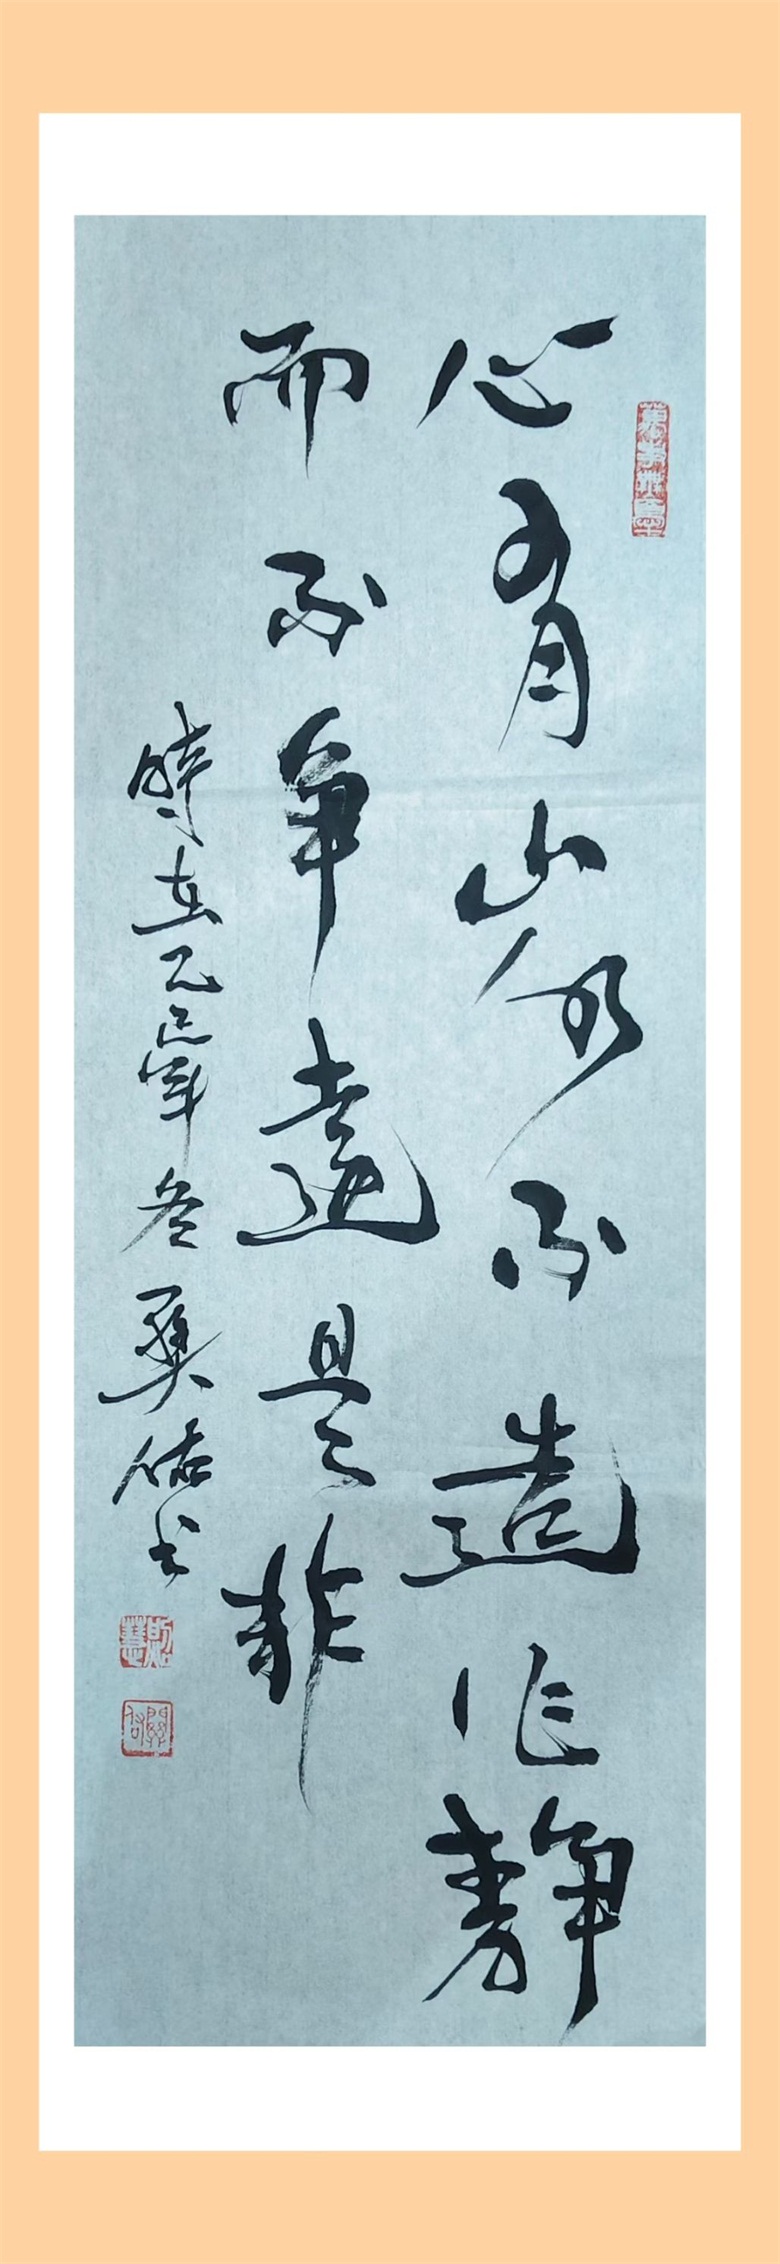 心有山水不造作静
而不争远是非
時在乙巳年冬
佑书